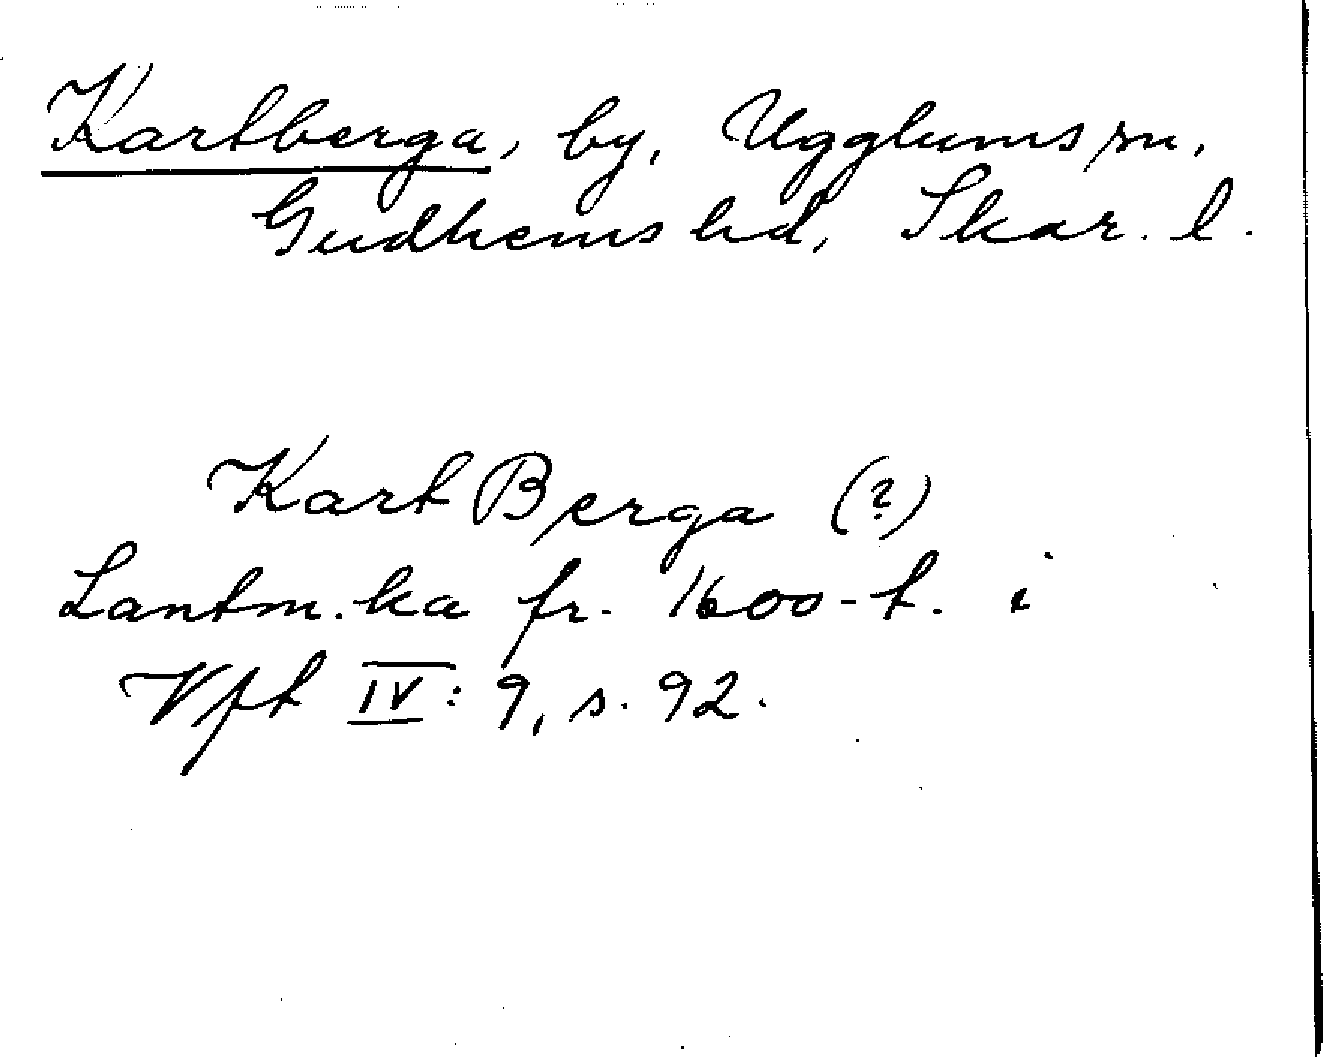 Kartberga, by, Ugglums sn,
Gudhems hd, Skar. l.
Kart Berga (?)
Lantm. ka fr. 1600-t. i
Vft IV: 9, s. 92.